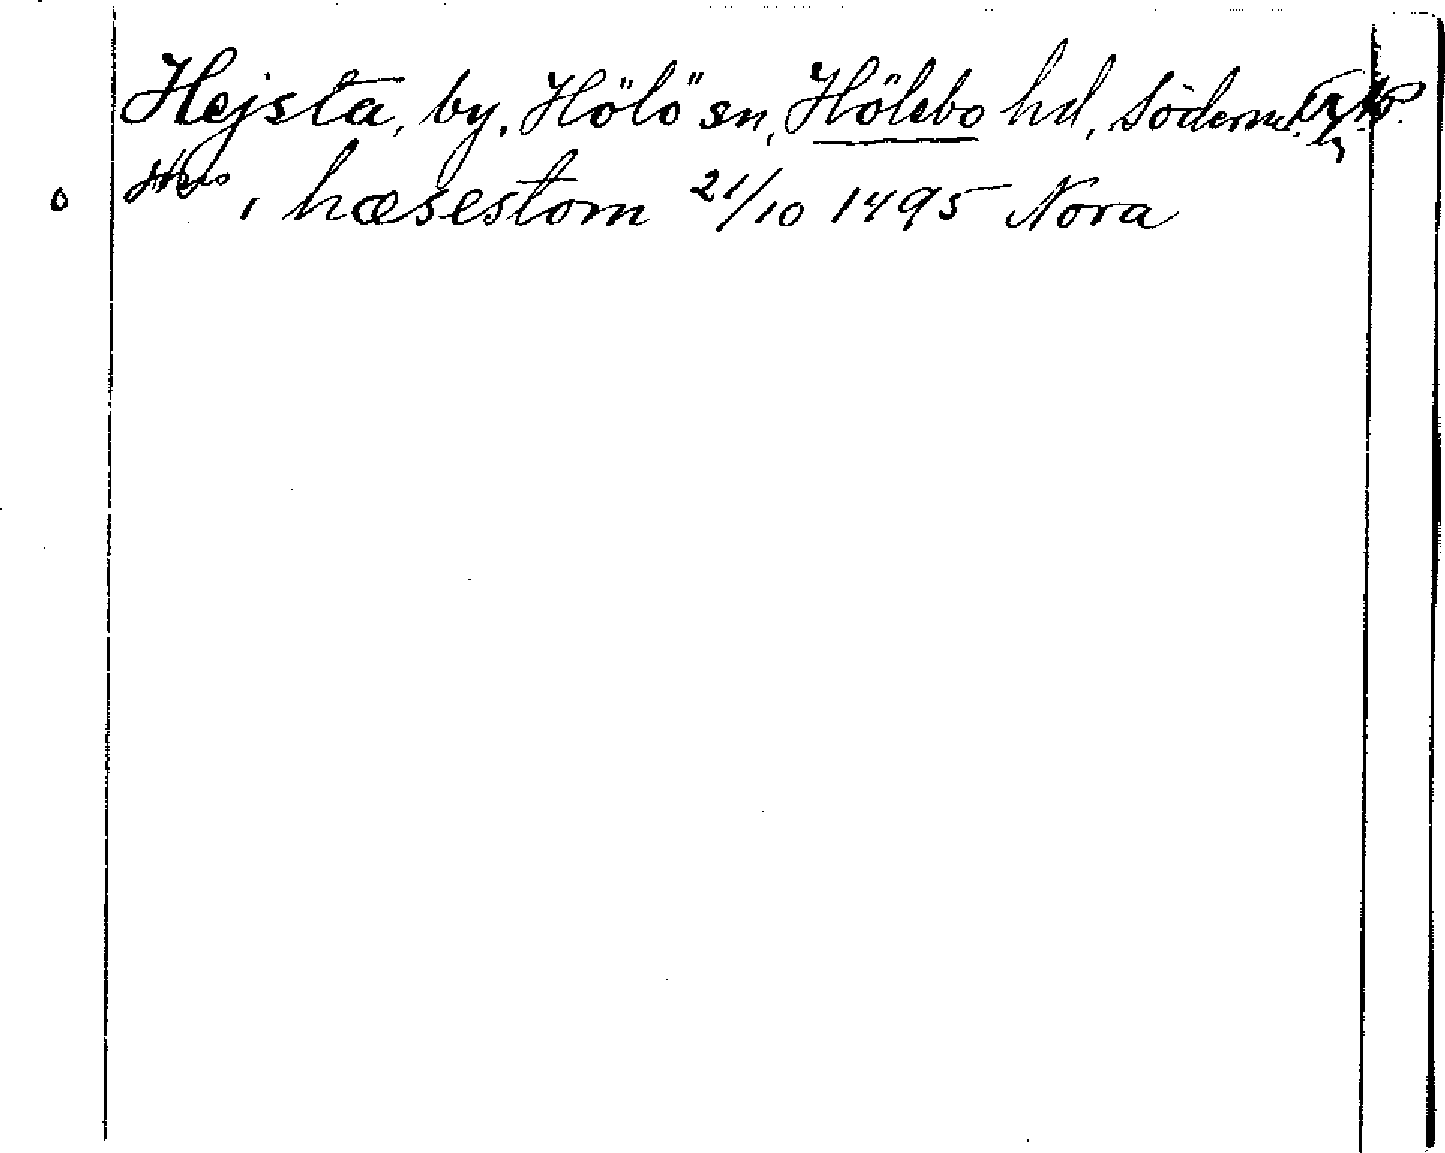 Hejsta, by, Hölö sn, Hölebo hd, Söderml.
i hæsestom 21/10 1495 Nora